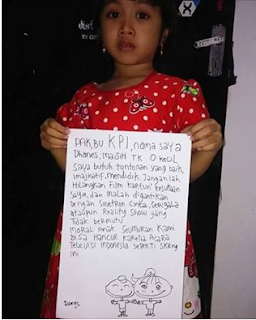 PAK, BU KPI, nama saya
Dhanes, masih TK 0 kecil
Saya butuh tontonan yang baik,
imajinatif, mendidik. Janganlah
Hilangkan film kartun² kesukaan
Saya, dan malah digantikan
Dengan Sinetron Cinta, Serigala
ataupun Reality Show yang
Tidak bermutu
moral Anak Seumuran Kami
bisa Hancur karena Acara
Televisi Indonesia seperti skrng
ini